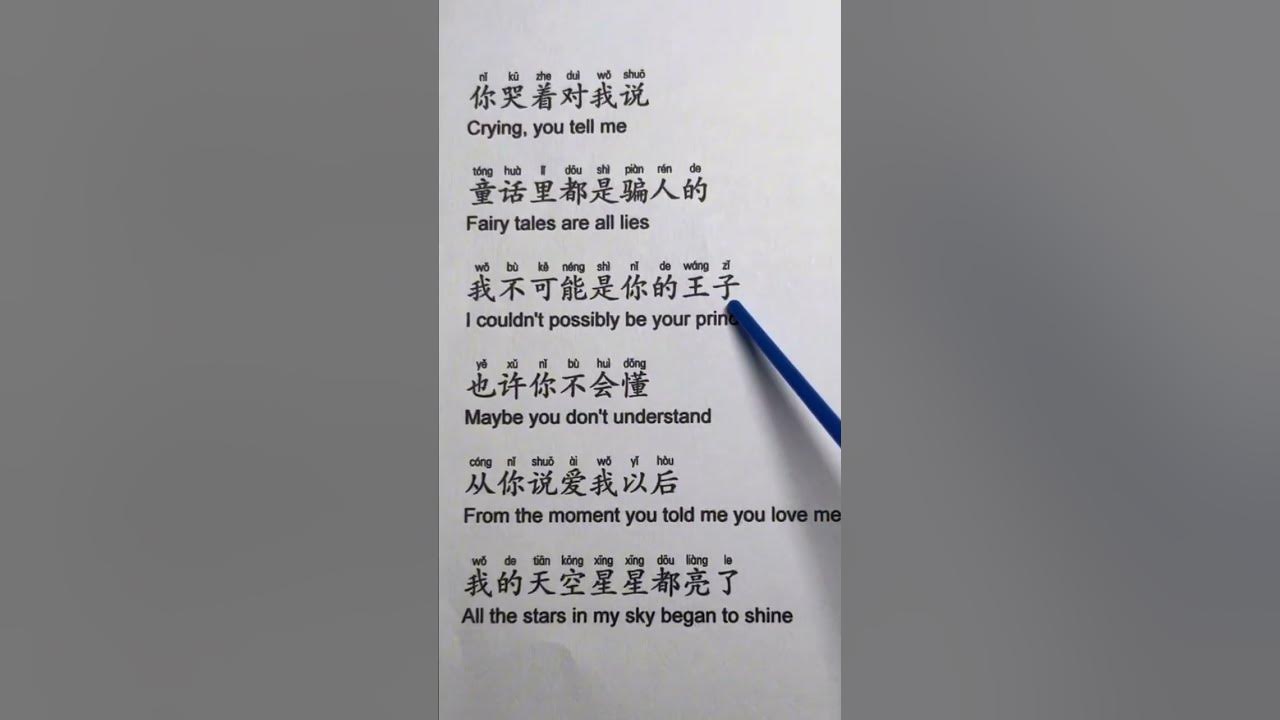 nǐ kū zhe duì wǒ shuō
你哭着对我说
Crying, you tell me
tóng huà lǐ dōu shì piàn rén de
童话里都是骗人的
Fairy tales are all lies
wǒ bù kě néng shì nǐ de wáng zǐ
我不可能是你的王子
I couldn't possibly be your
yě xǔ nǐ bù huì dǒng
也许你不会懂
Maybe you don't understand
cóng nǐ shuō ài wǒ yǐ hòu
从你说爱我以后
From the moment you told me you love me
wǒ de tiān kōng xīng xīng dōu liàng le
我的天空星星都亮了
All the stars in my sky began to shine